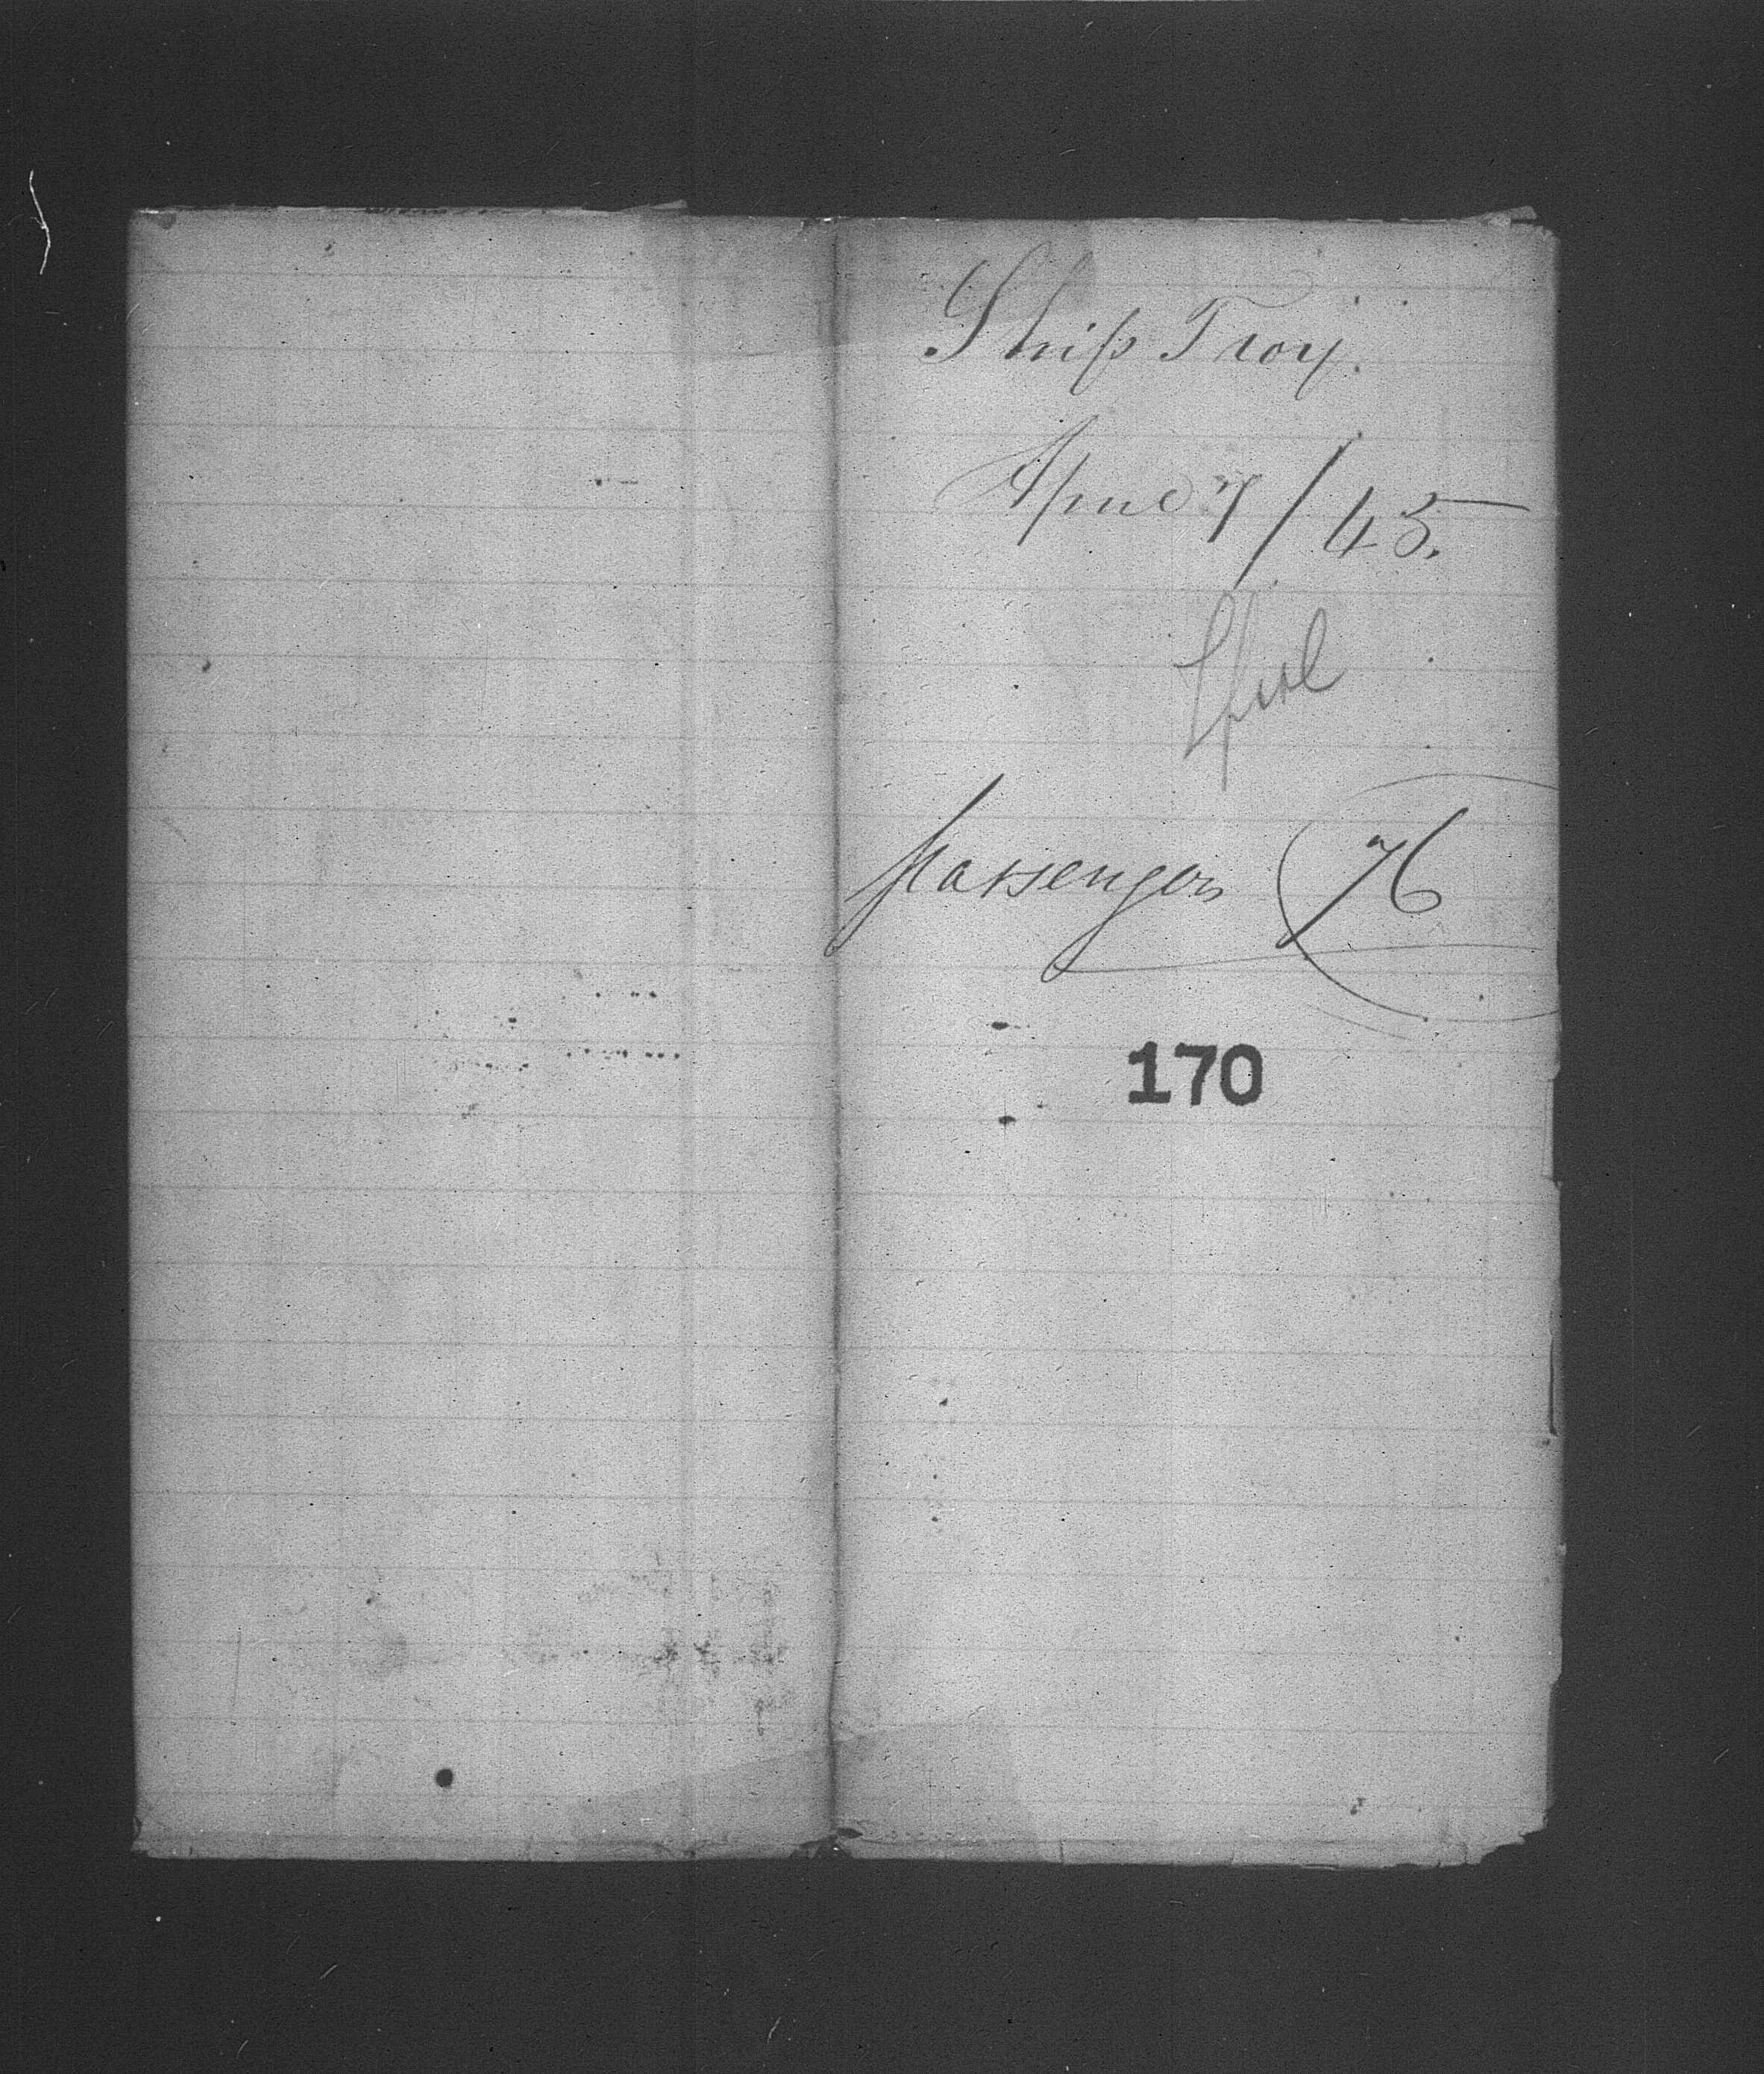 Ship Troy.
April 7/45.
Lpool
Passengers 76
170